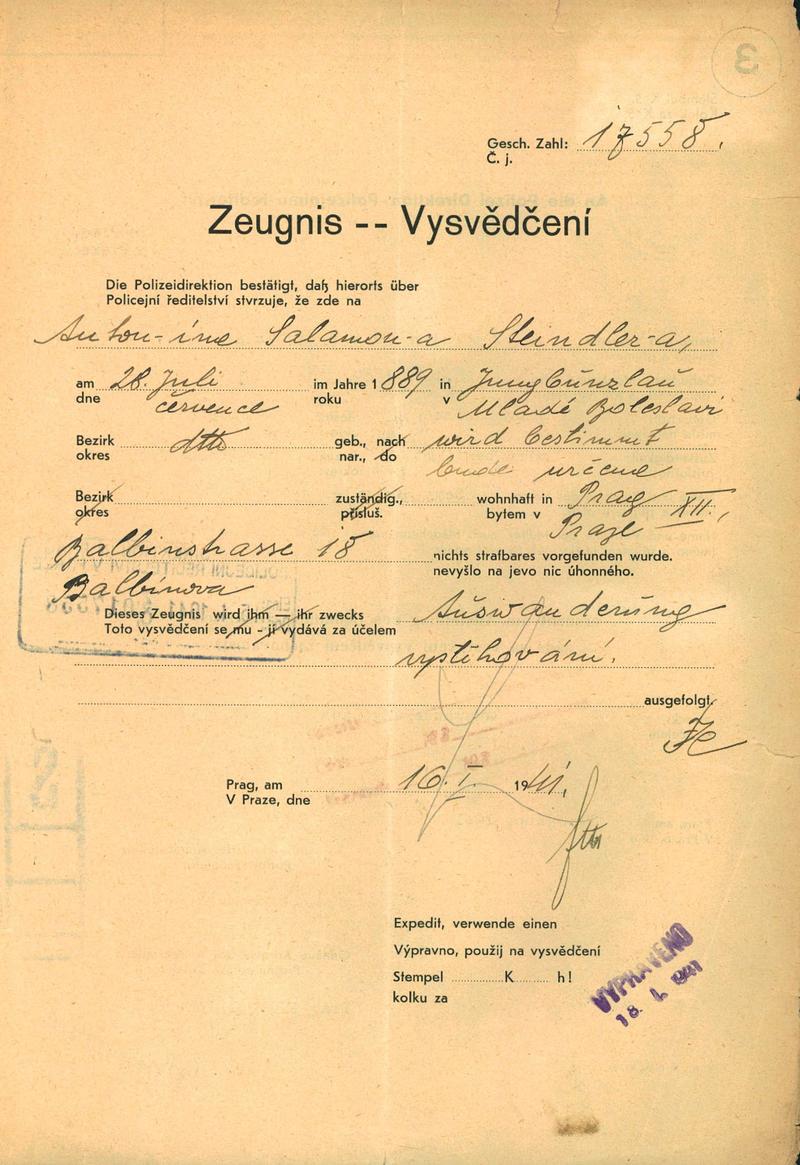 3
Gesch. Zahl: 17558.
Č. j.
Zeugnis -- Vysvědčení
Die Polizeidirektion bestätigt, daß hierorts über
Policejní ředitelství stvrzuje, že zde na
Anton-ína Salamon-a Steindler-a,
am 28. Juli im Jahre 1889 in Jungbunzlau
dne července roku v Mladé Boleslavi
Bezirk dtto geb., nach wird bestimmt
okres nar., do bude určeno
Bezirk zuständig., wohnhaft in Prag XII.,
okres přísluš. bytem v Praze
Balbinstrasse 18 nichts strafbares vorgefunden wurde.
nevyšlo na jevo nic úhonného.
Balbínova
Dieses Zeugnis wird ihm — ihr zwecks Auswanderung
Toto vysvědčení se mu - jí vydává za účelem
vystěhování.
ausgefolgt.
Prag, am 16. I. 1941.
V Praze, dne
Expedit, verwende einen
Výpravno, použij na vysvědčení
Stempel K h!
kolku za
VYPRAVENO
18. I. 1941